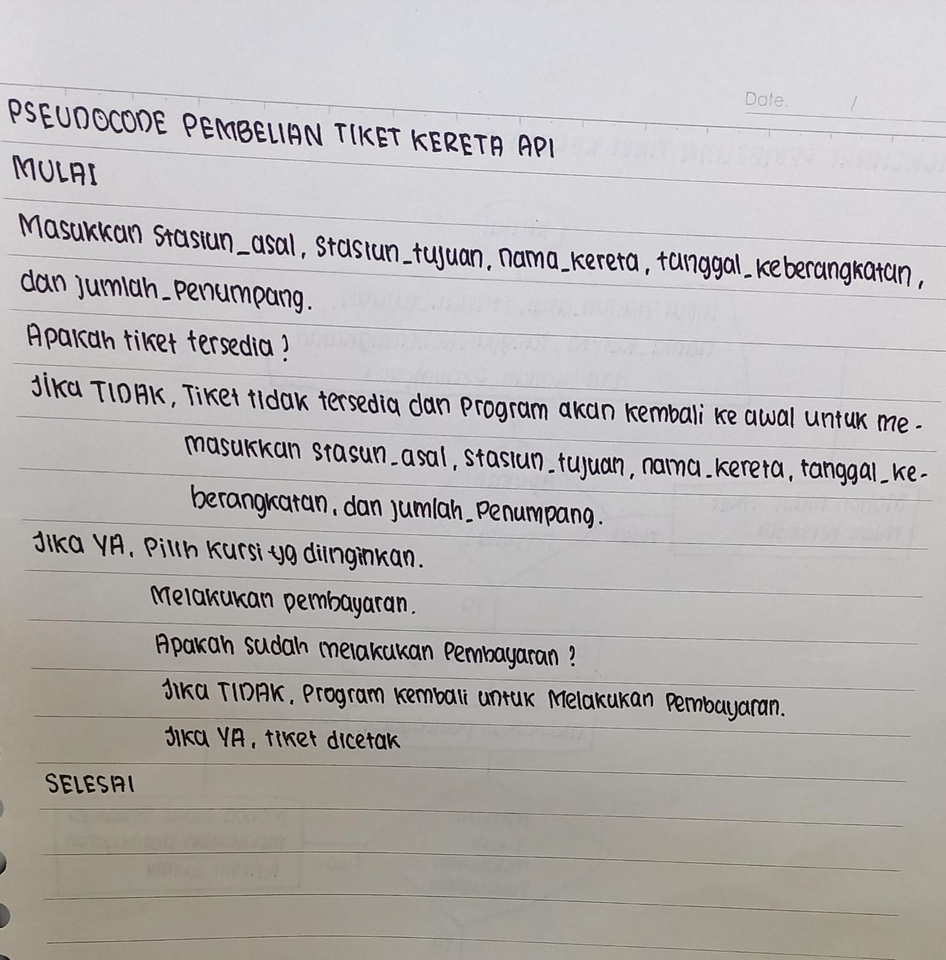 Date. /
PSEUDOCODE PEMBELIAN TIKET KERETA API
MULAI
Masukkan stasiun_asal, stasiun_tujuan, nama_kereta, tanggal_keberangkatan,
dan jumlah_penumpang.
Apakah tiket tersedia?
Jika TIDAK, Tiket tidak tersedia dan program akan kembali ke awal untuk me-
masukkan stasun_asal, stasiun_tujuan, nama_kereta, tanggal_ke-
berangkatan, dan jumlah_penumpang.
Jika YA, Pilih kursi yg diinginkan.
Melakukan pembayaran.
Apakah sudah melakukan Pembayaran?
Jika TIDAK, Program kembali untuk Melakukan Pembayaran.
Jika YA, tiket dicetak
SELESAI